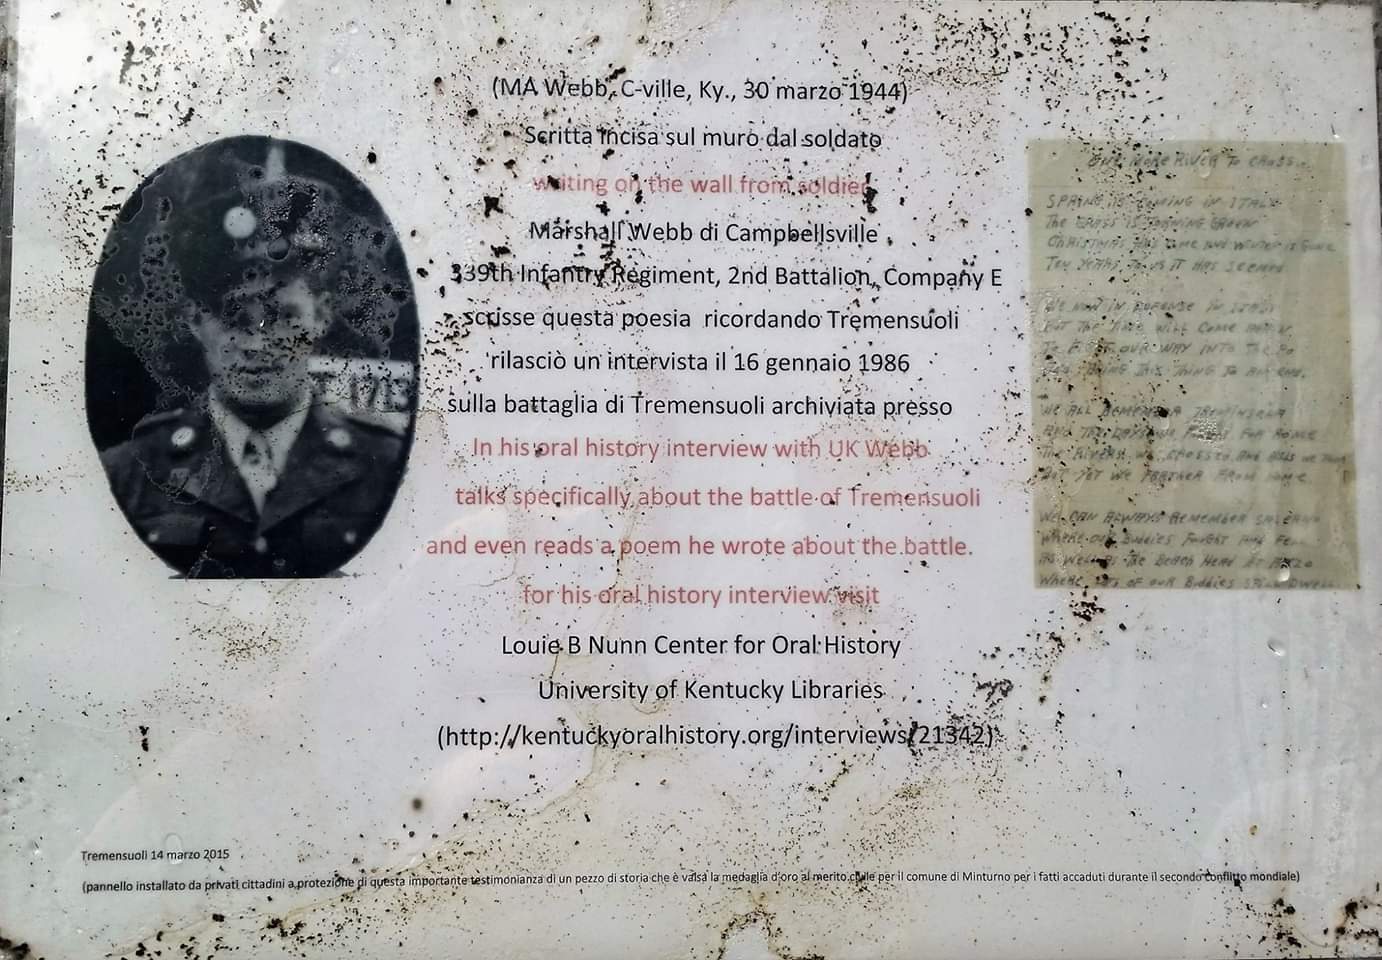 (MA Webb, C-ville, Ky., 30 marzo 1944)
Scritta incisa sul muro dal soldato
writing on the wall from soldier
Marshall Webb di Campbellsville
339th Infantry Regiment, 2nd Battalion, Company E
scrisse questa poesia ricordando Tremensuoli
rilasciò un intervista il 16 gennaio 1986
sulla battaglia di Tremensuoli archiviata presso
In his oral history interview with UK Webb
talks specifically about the battle of Tremensuoli
and even reads a poem he wrote about the battle.
for his oral history interview visit
Louie B Nunn Center for Oral History
University of Kentucky Libraries
(http://kentuckyoralhistory.org/interviews/21342)
Tremensuoli 14 marzo 2015
(pannello installato da privati cittadini a protezione di questa importante testimonianza di un pezzo di storia che è valsa la medaglia d'oro al merito civile per il comune di Minturno per i fatti accaduti durante il secondo conflitto mondiale)
1713
ONE MORE RIVER TO CROSS
SPRING IS COMING IN ITALY
THE GRASS IS TURNING GREEN
CHRISTMAS HAS COME AND WINTER IS GONE
TEN YEARS TO US IT HAS SEEMED
IN DEFENSE IN ITALY
BUT THE TIME WILL COME
TO FIGHT OUR WAY INTO THE PO
THIS THING TO AN END.
WE ALL REMEMBER
AND THE DAYS FOR ROME
THE RIVERS WE CROSSED AND HILLS WE
BUT YET WE FARTHER FROM HOME
WE CAN ALWAYS REMEMBER SALERNO
WHERE OUR BUDDIES FOUGHT AND FELL
AS WELL AS THE BEACH HEAD AT ANZIO
WHERE LOTS OF OUR BUDDIES STILL DWELL